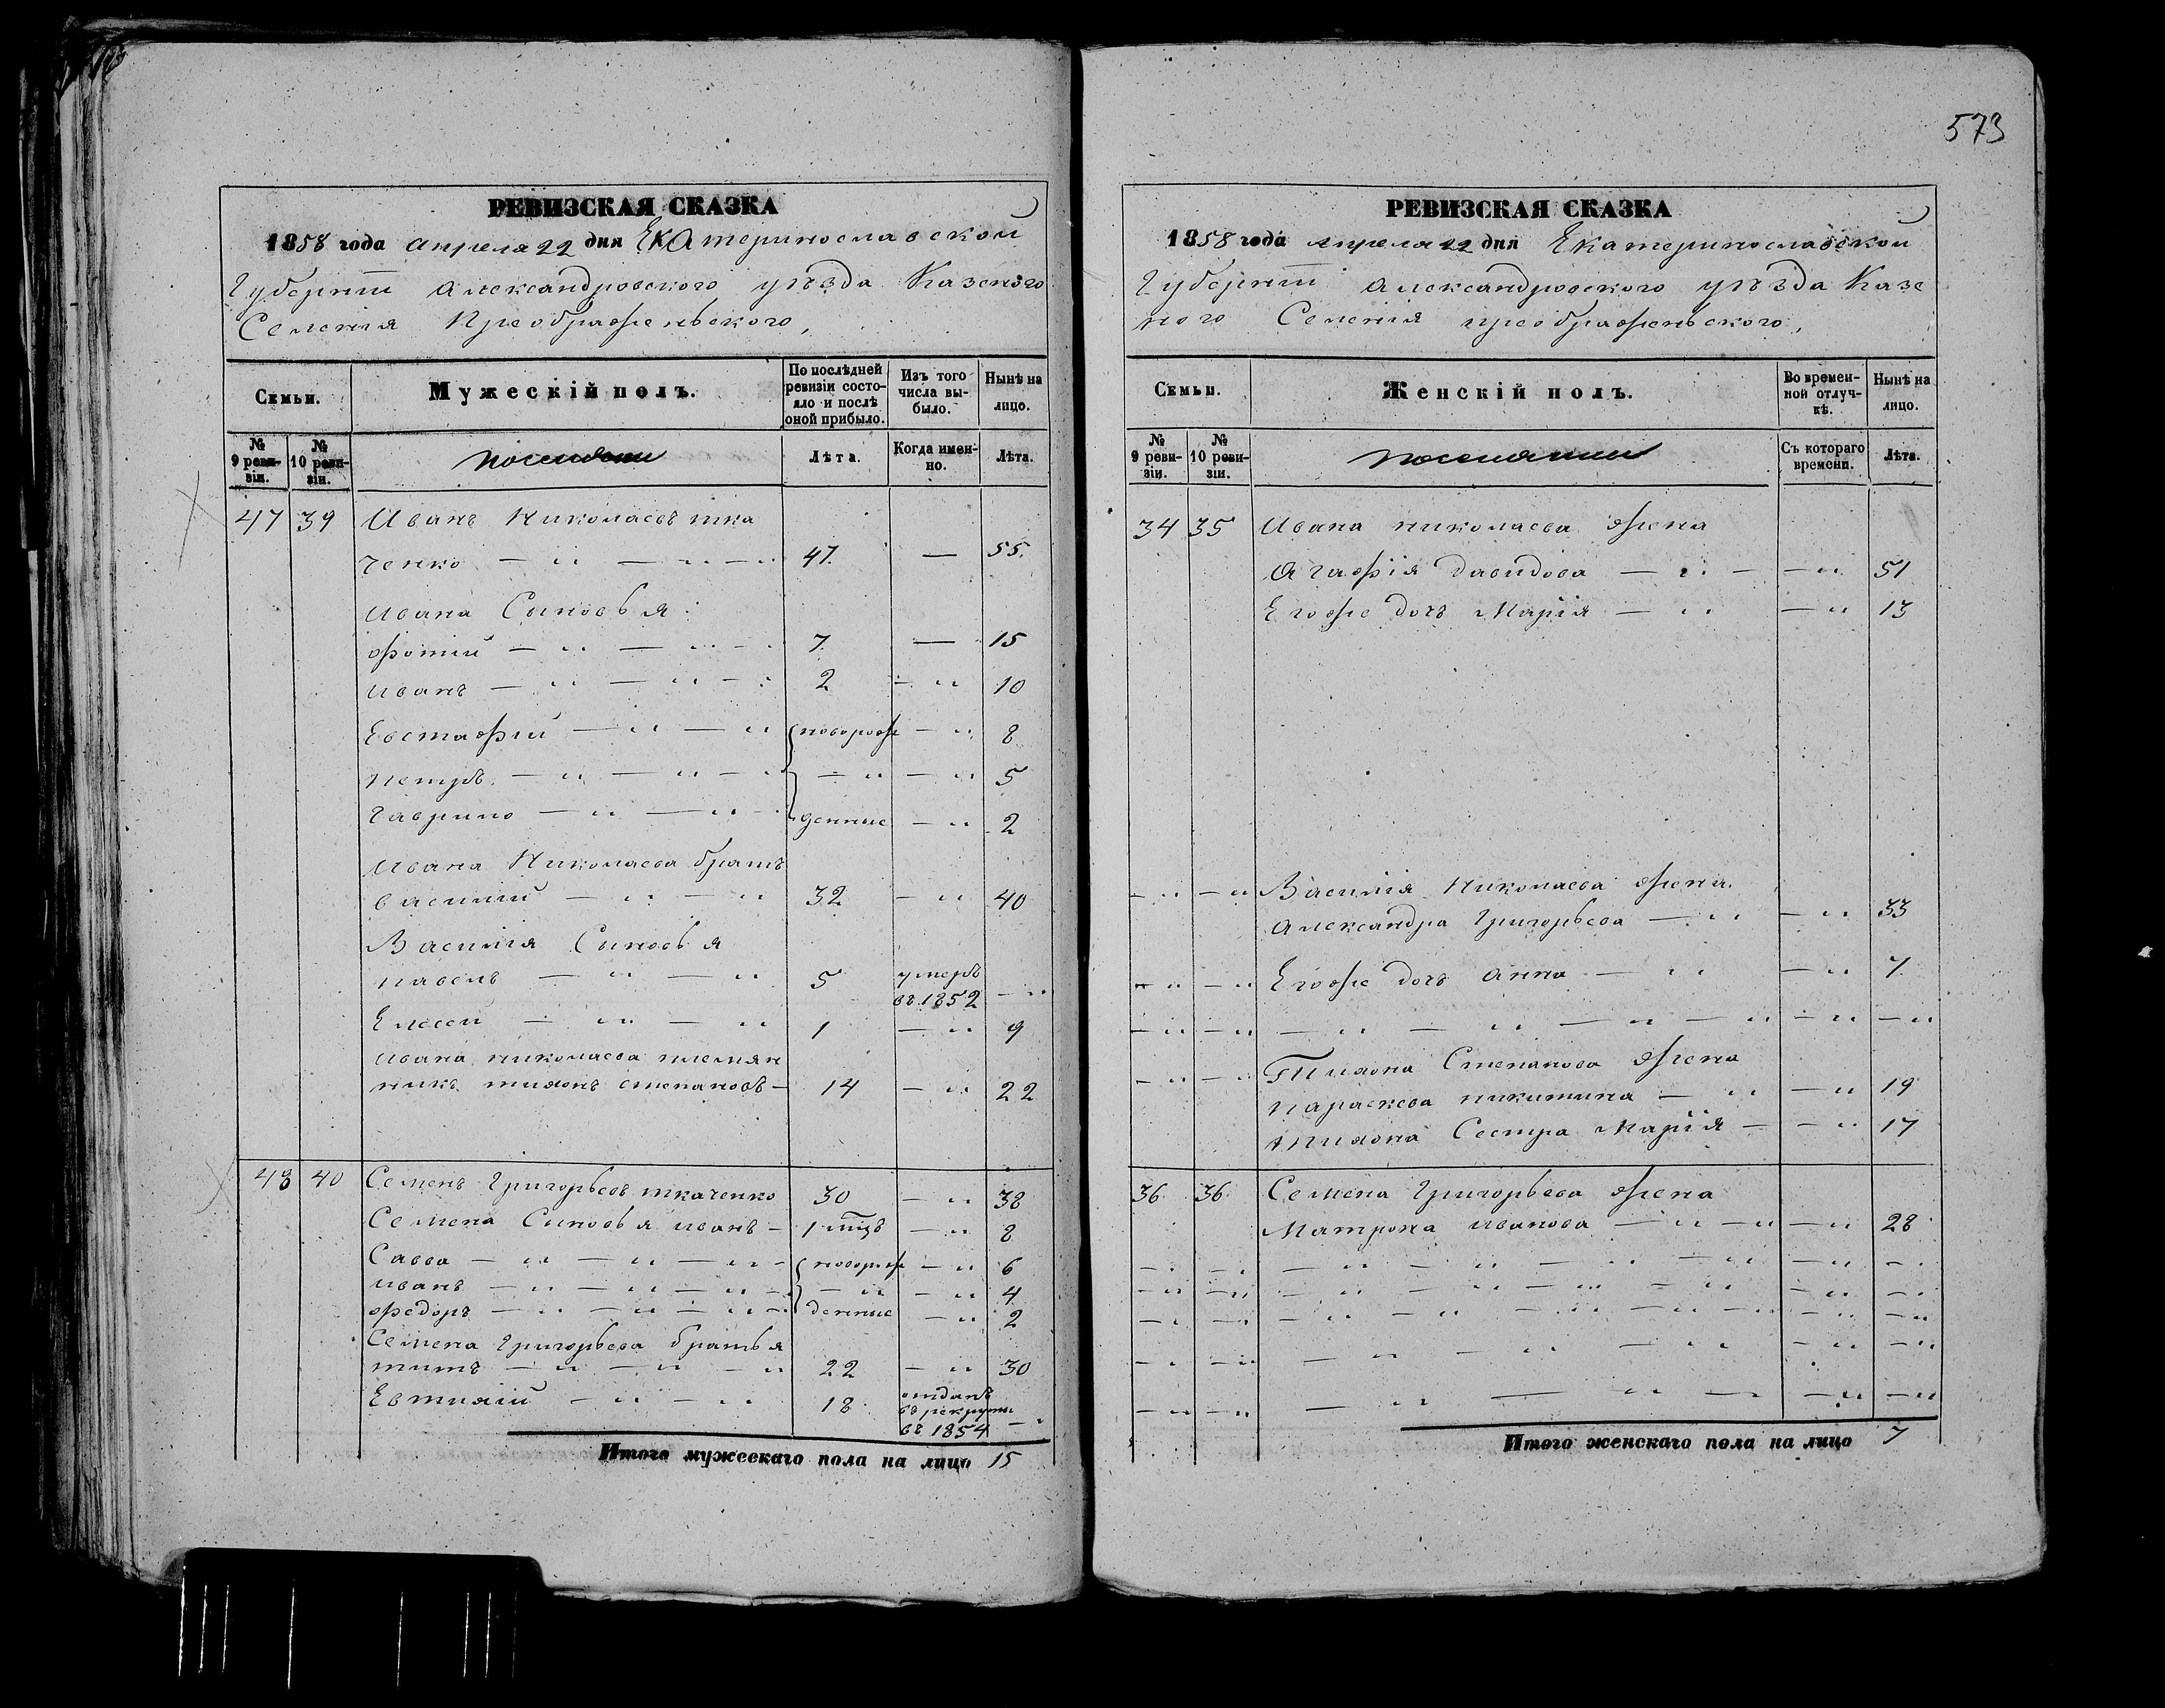 573
РЕВИЗСКАЯ СКАЗКА
1858 года апреля 22 дня Екатеринославской
Губернiи Александровского уѣзда Казеного
Селенiя Преображеньского,
Семьи.
Мужескiй полъ.
По послѣдней ревизiи состояло и послѣ оной прибыло.
Изъ того числа выбыло.
Нынѣ на лицо.
№ 9 ревизiи.
№ 10 ревизiи.
поселяни
Лѣта.
Когда именно.
Лѣта.
47 39 Иванъ Николаевъ тка
ченко — " — " — " 47. — 55.
Ивана Сыновья:
Фотiй — " — " — " 7. — 15
Иванъ — " — " — : 2 — " 10
Евстафiй — " — " новорож — " 8
Петръ — " — " — " — " — " 5
Гаврило — " — " — " денные — " 2
Ивана Николаева братъ
Василiй — " — " 32 — " 40
Василiя Сыновья
Павелъ — " — " 5 умеръ
въ 1852 — "
Елисей — " — " 1 — " 9
Ивана Николаева племян
никъ тихонъ степановъ — 14 — " 22
48 40 Семенъ Григорьевъ ткаченко 30 — " 38
Семена Сыновья иванъ — 1 — " 8
Савва — " — " — " — новорож — " 6
Иванъ — " — " — " — " — " 4
Федоръ — " — " — " — денные — " 2
Семена Григорьева братья
титъ — " — " — " 22 — " 30
Евтихiй — " — " 18. отданъ
въ рекруты
въ 1854 — "
Итого мужескаго пола на лицо 15
РЕВИЗСКАЯ СКАЗКА
1858 года апреля 22 дня Екатеринославской
Губернiи Александровского уѣзда Казе
ного Селенiя преображеньского,
Семьи.
Женскiй полъ.
Во временной отлучкѣ.
Нынѣ на лицо.
№ 9 ревизiи.
№ 10 ревизiи.
поселянки
Съ котораго времени.
Лѣта.
34 35 Ивана николаева жена
Агафiя Давидова — " — — " 51
Егоже дочъ Марiя — " — " 13
— " — " Василiя Николаева жена.
Александра Григорьева — " — " 33
— " — " Егоже дочъ Анна — " — " 7
— " — " — " — " — " — " — " — "
— " — " Тихона Степанова жена
Параскева никитина — " — " 19
Тихона Сестра Марiя — — " 17
36. 36. Семена Григорьева жена
Матрона иванова — " — " — " 28
— " — " — " — " — " — " — " — "
— " — " — " — " — " — " — " — "
— " — " — " — " — " — " — " — "
— " — " — " — " — " — " — "
— " — " — " — " — — " — "
Итого женскаго пола на лицо 7